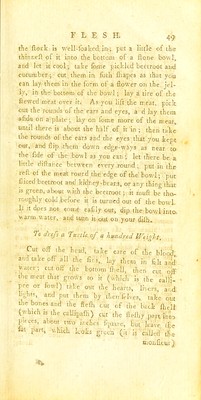 FLESH. 49
the stock is well soaked in; put a little of the
thinnest of it into the bottom of a stone bowl,
and let it cool; take some pickled beetroot and
cucumber; cut them in such shapes as that you
can lay them in the form of a flower on the jel-
ly, in the bottom of the bowl; lay a tire of the
stewed meat over it. As you lift the meat, pick
out the rounds of the ears and eyes, and lay them
aside on a plate; lay on some more of the meat,
until there is about the half of it in; then take
the rounds of the ears and the eyes that you kept
out, and slip them down edge-ways as near to
the side of the bowl as you can; let there be a
little distance between every round; put in the
rest of the meat round the edge of the bowl; put
sliced beetroot and kidney-beans, or any thing that
is green, about with the beetroot; it must be tho-
roughly cold before it is turned out of the bowl.
If it does not come easily out, dip the bowl into
warm water, and turn it out on your dish.
To dress a Turtle of a hundred Weight.
Cut off the head, take care of the blood,
and take off all the fins, lay them in salt and
water; cut off the bottom shell, then cut off
the meat that grows to it (which is the calli-
pee or fowl) take out the hearts, livers, and
lights, and put them by themselves, take out
the bones and the flesh out of the back shell
(which is the callipash) cut the fleshy part into
pieces, about two inches square, but leave the
fat part, which looks green (it is called the
monsieur)